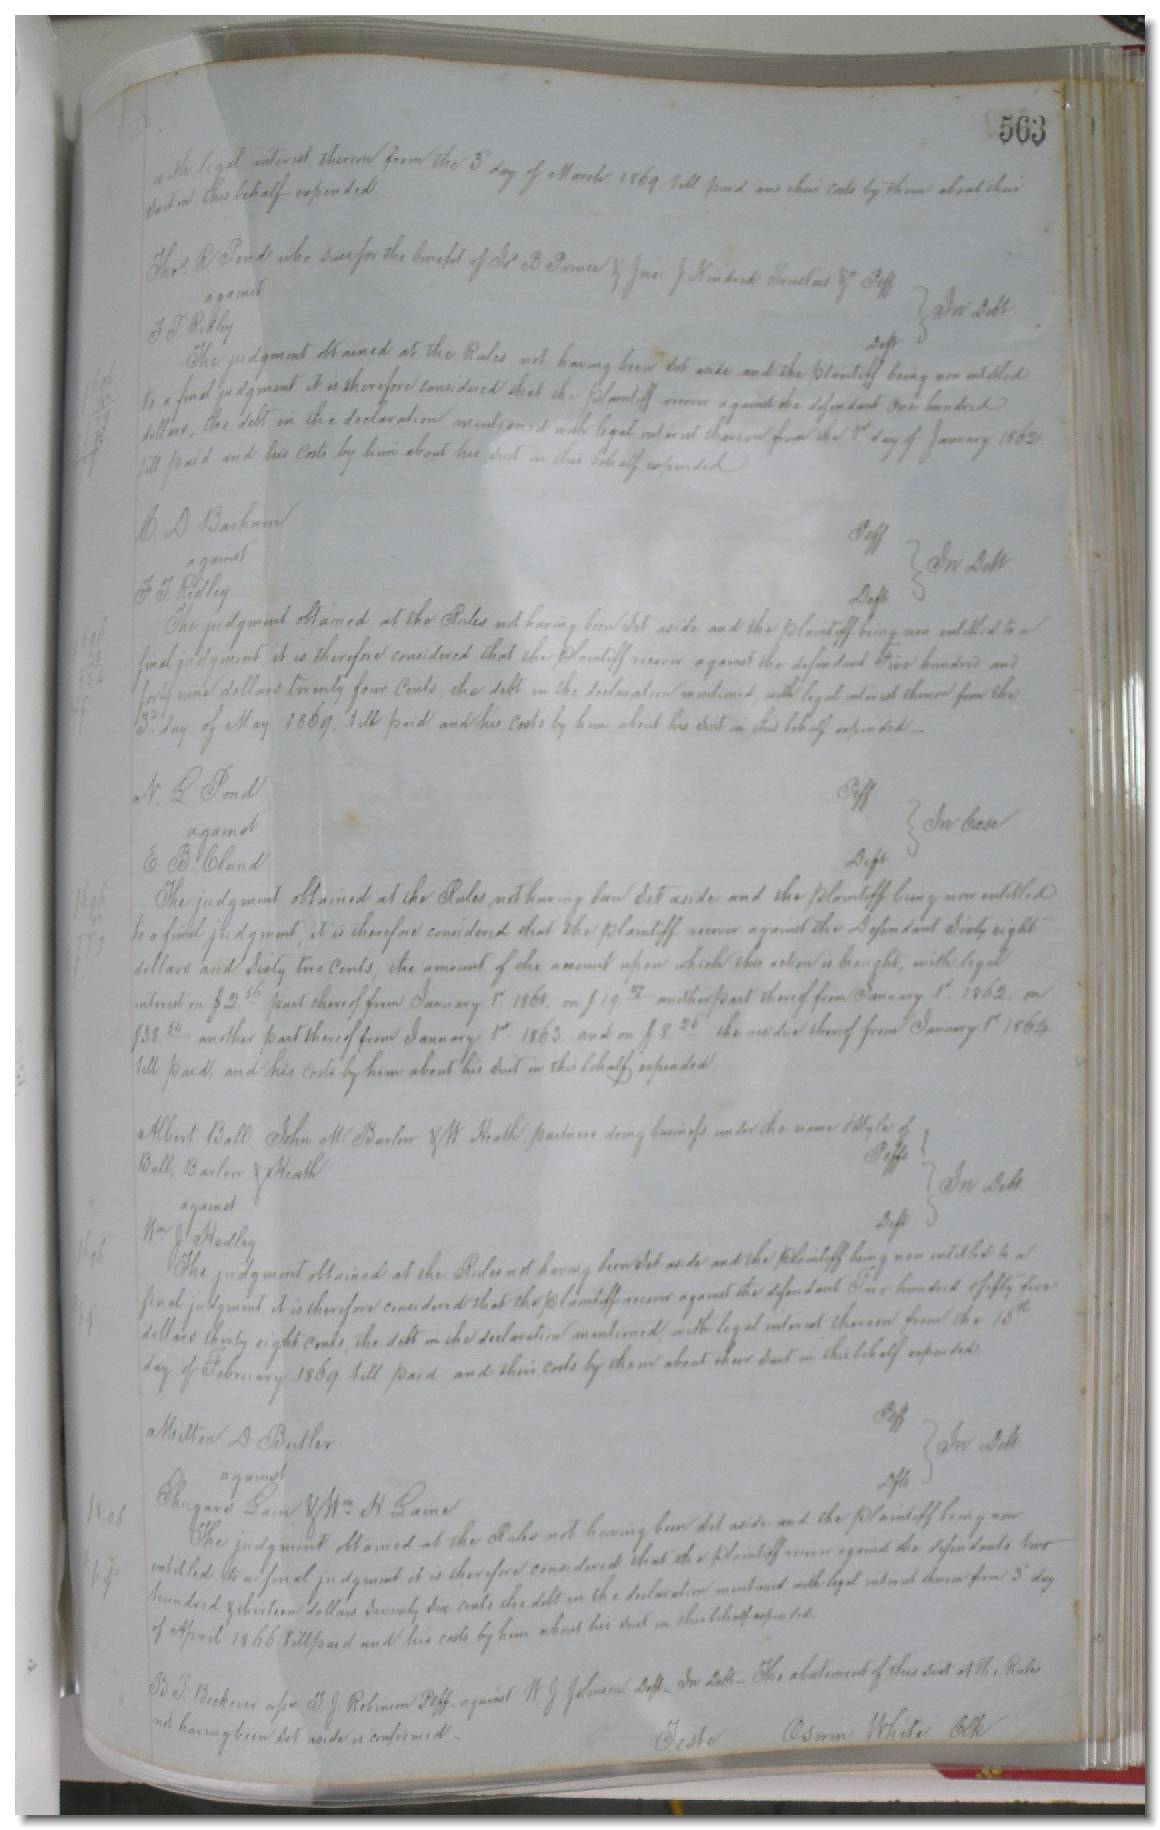 563
with legal interest thereon from the 3 day of March 1869 till paid and their costs by them about their
suit in this behalf expended.
Thos. R Pond who sues for the benefit of Js B Prince & Jno: J Kindred Trustees &c Plff
against
F. T. Ridley Deft } In Debt.
The judgment obtained at the Rules not having been set aside and the plaintiff being now entitled
to a final judgment it is therefore considered that the plaintiff recover against the defendant One hundred
dollars, the debt in the declaration mentioned with legal interest thereon from the 1st day of January 1862
till paid and his costs by him about his suit in this behalf expended
C. D Barham Plff
against } In Debt.
F T. Ridley Deft
The judgment obtained at the Rules not having been set aside and the plaintiff being now entitled to a
final judgment it is therefore considered that the plaintiff recover against the defendant Five hundred and
forty nine dollars twenty four cents, the debt in the declaration mentioned, with legal interest thereon from the
3rd day of May 1869, till paid and his costs by him about his suit in this behalf expended —
N. L Pond Plff
against } In Case
E B Claud Deft
The judgment obtained at the Rules, not having been set aside and the plaintiff being now entitled
to a final judgment, it is therefore considered that the plaintiff recover against the Defendant Sixty eight
dollars and Sixty two cents, the amount of the account upon which this action is brought, with legal
interest on $2.56 part thereof from January 1st 1861. on $19 27 another part thereof from January 1st. 1862. on
$38.54 another part thereof from January 1st. 1863. and on $8 25 the residue thereof from January 1st 1864
till paid, and his costs by him about his suit in this behalf expended.
Albert Ball, John M Barlow & W Heath partners doing business under the name & style of
Ball, Barlow & Heath Plffs
against } In Debt.
Wm J Hedley Deft
The judgment obtained at the Rules not having been set aside and the plaintiff being now entitled to a
final judgment, it is therefore considered that the plaintiff recover against the defendant Two hundred & fifty five
dollars thirty eight cents, the debt in the declaration mentioned, with legal interest thereon from the 15th
day of February 1869 till paid and their costs by them about their suit in this behalf expended
Milton D Butler Plff
against } In Debt
Shugars Lain & Wm. H Laine Dfts
The judgment obtained at the Rules not having been set aside and the plaintiff being now
entitled to a final judgment it is therefore considered that the plaintiff recover against the defendants two
hundred & thirteen dollars Seventy Six cents the debt in the declaration mentioned with legal interest thereon from 3 day
of April 1866 till paid and his costs by him about his suit in this behalf expended.
B. T. T. J. Robinson Plff. against W J Johnson Deft. In Debt — The abatement of this suit at the Rules
not having been set aside is confirmed —
Teste Oswin White Clk